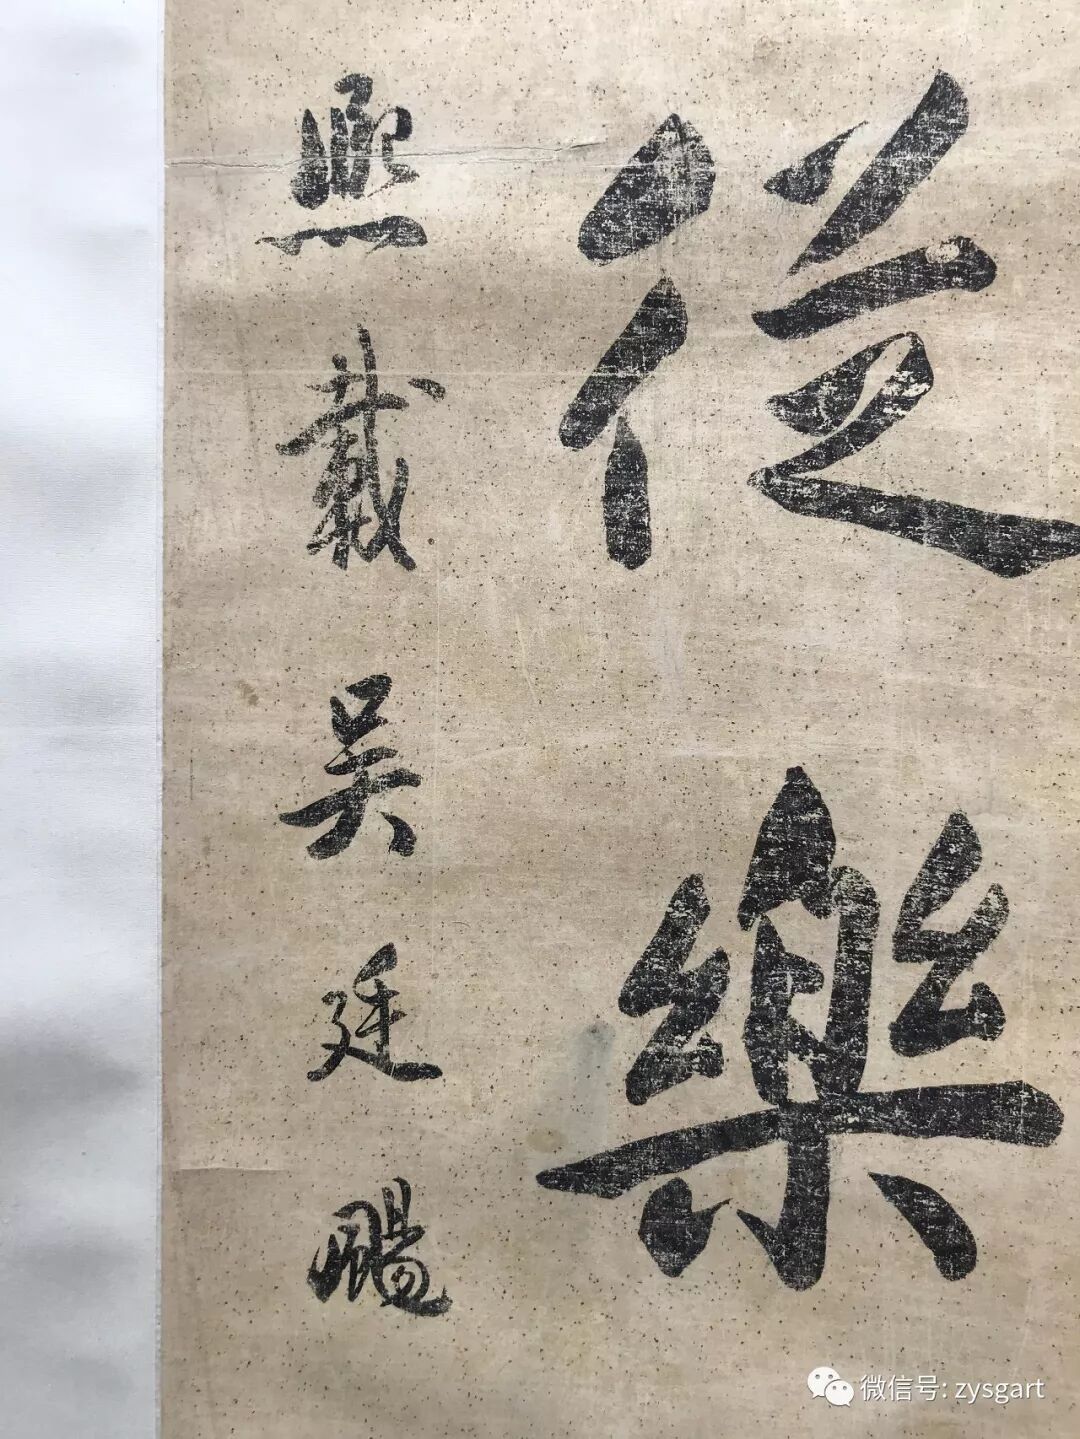 從樂
熙載吳廷颺
微信号: zysgart